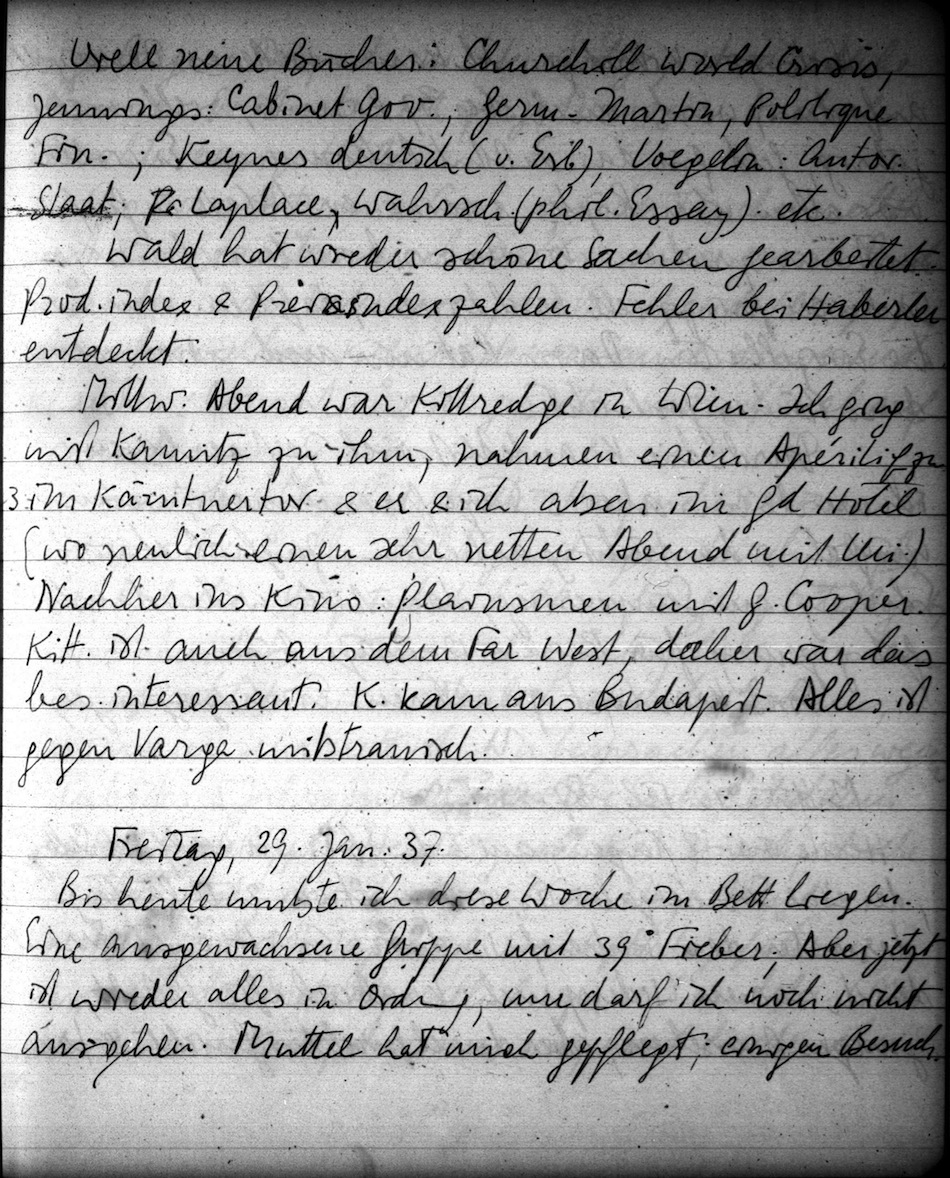 neue Bücher: Churchill World Crisis,
Jennings: Cabinet Gov.; Germ.-Martin, Politique
Fin.; Keynes deutsch (v. Erb), Voegelin: Autor.
Staat; Laplace, Wahrsch. (phil. Essay). etc.
Wald hat wieder schöne Sachen gearbeitet.
Prod.index & Preisindexzahlen. Fehler bei Haberler
entdeckt.
Mittw. Abend war Kittredge in Wien. Ich ging
mit Kamitz zu ihm, nahmen einen Apéritif zu
3 im Kärntnertor & er & ich assen im Gd Hotel
(wo neulich einen sehr netten Abend mit)
Nachher ins Kino: Plainsmen mit G. Cooper.
Kitt. ist auch aus dem Far West, daher war das
bes. interessant. K. kam aus Budapest. Alles ist
gegen Varga misstrauisch.
Freitag, 29. Jan. 37.
Bis heute musste ich diese Woche im Bett liegen.
Eine ausgewachsene Grippe mit 39° Fieber; Aber jetzt
ist wieder alles in Ordng, nur darf ich noch nicht
ausgehen. Muttel hat mich gepflegt; einigen Besuch.